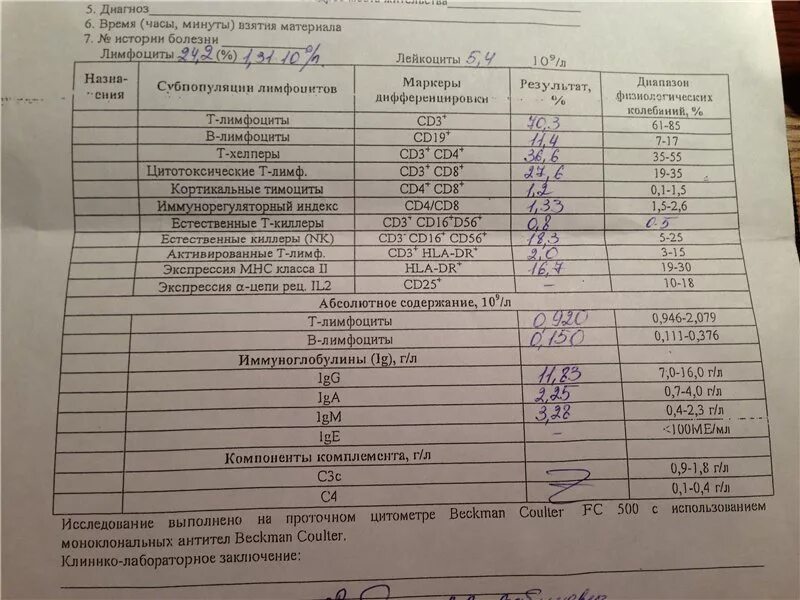 5. Диагноз
6. Время (часы, минуты) взятия материала
7. № истории болезни
Лимфоциты 24,2 (%) 1,31·10⁹/л Лейкоциты 5,4 10⁹/л
Назна- Субпопуляции лимфоцитов Маркеры Результат, Диапазон
чения дифференцировки % физиологических
колебаний, %
Т-лимфоциты CD3⁺ 70,3 61-85
В-лимфоциты CD19⁺ 11,4 7-17
Т-хелперы CD3⁺ CD4⁺ 36,6 35-55
Цитотоксические Т-лимф. CD3⁺ CD8⁺ 27,6 19-35
Кортикальные тимоциты CD4⁺ CD8⁺ 1,2 0,1-1,5
Иммунорегуляторный индекс CD4/CD8 1,33 1,5-2,6
Естественные Т-киллеры CD3⁺ CD16⁺D56⁺ 0,8 0-5
Естественные киллеры (NK) CD3⁻ CD16⁺ CD56⁺ 18,3 5-25
Активированные Т-лимф. CD3⁺ HLA-DR⁺ 2,0 3-15
Экспрессия МНС класса II HLA-DR⁺ 16,7 19-30
Экспрессия α-цепи рец. IL2 CD25⁺ – 10-18
Абсолютное содержание, 10⁹/л
Т-лимфоциты 0,920 0,946-2,079
В-лимфоциты 0,150 0,111-0,376
Иммуноглобулины (Ig), г/л
IgG 11,83 7,0-16,0 г/л
IgA 2,25 0,7-4,0 г/л
IgM 3,28 0,4-2,3 г/л
IgE – <100МЕ/мл
Компоненты комплемента, г/л
С3с 0,9-1,8 г/л
С4 0,1-0,4 г/л
Исследование выполнено на проточном цитометре Beckman Coulter FC 500 с использованием
моноклональных антител Beckman Coulter.
Клинико-лабораторное заключение: